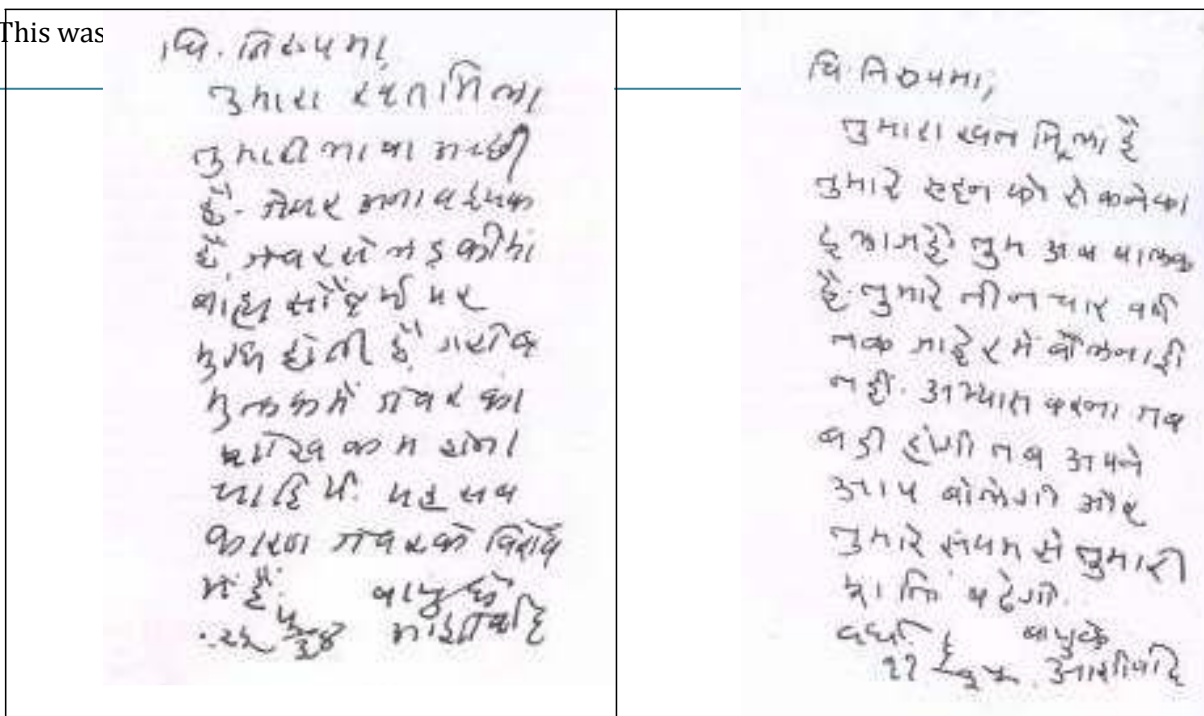 This was
चि. निरुपमा,
तुमारा खत मिला
तुमारी भाषा अच्छी
है. जेवर अनावश्यक
है. जेवर से लड़कीयां
बाह्य सौंदर्य पर
मुग्ध होती हैं. गरीब
मुल्क में जेवर का
शौख कम होना
चाहिये. यह सब
कारण जेवर के विरोध
में हैं.
बापु के
आशीर्वाद
चि. निरुपमा,
तुमारा खत मिला है
तुमारे रुदन को रोकने का
तुम अब बालक
है. तुमारे तीन चार वर्ष
तक जाहेर में बोलना ही
नहीं. अभ्यास करना जब
बड़ी होगी तब अपने
आप बोलेगी और
तुमारे संयम से तुमारी
शक्ति बढ़ेगी.
वर्धा बापु के
आशीर्वाद